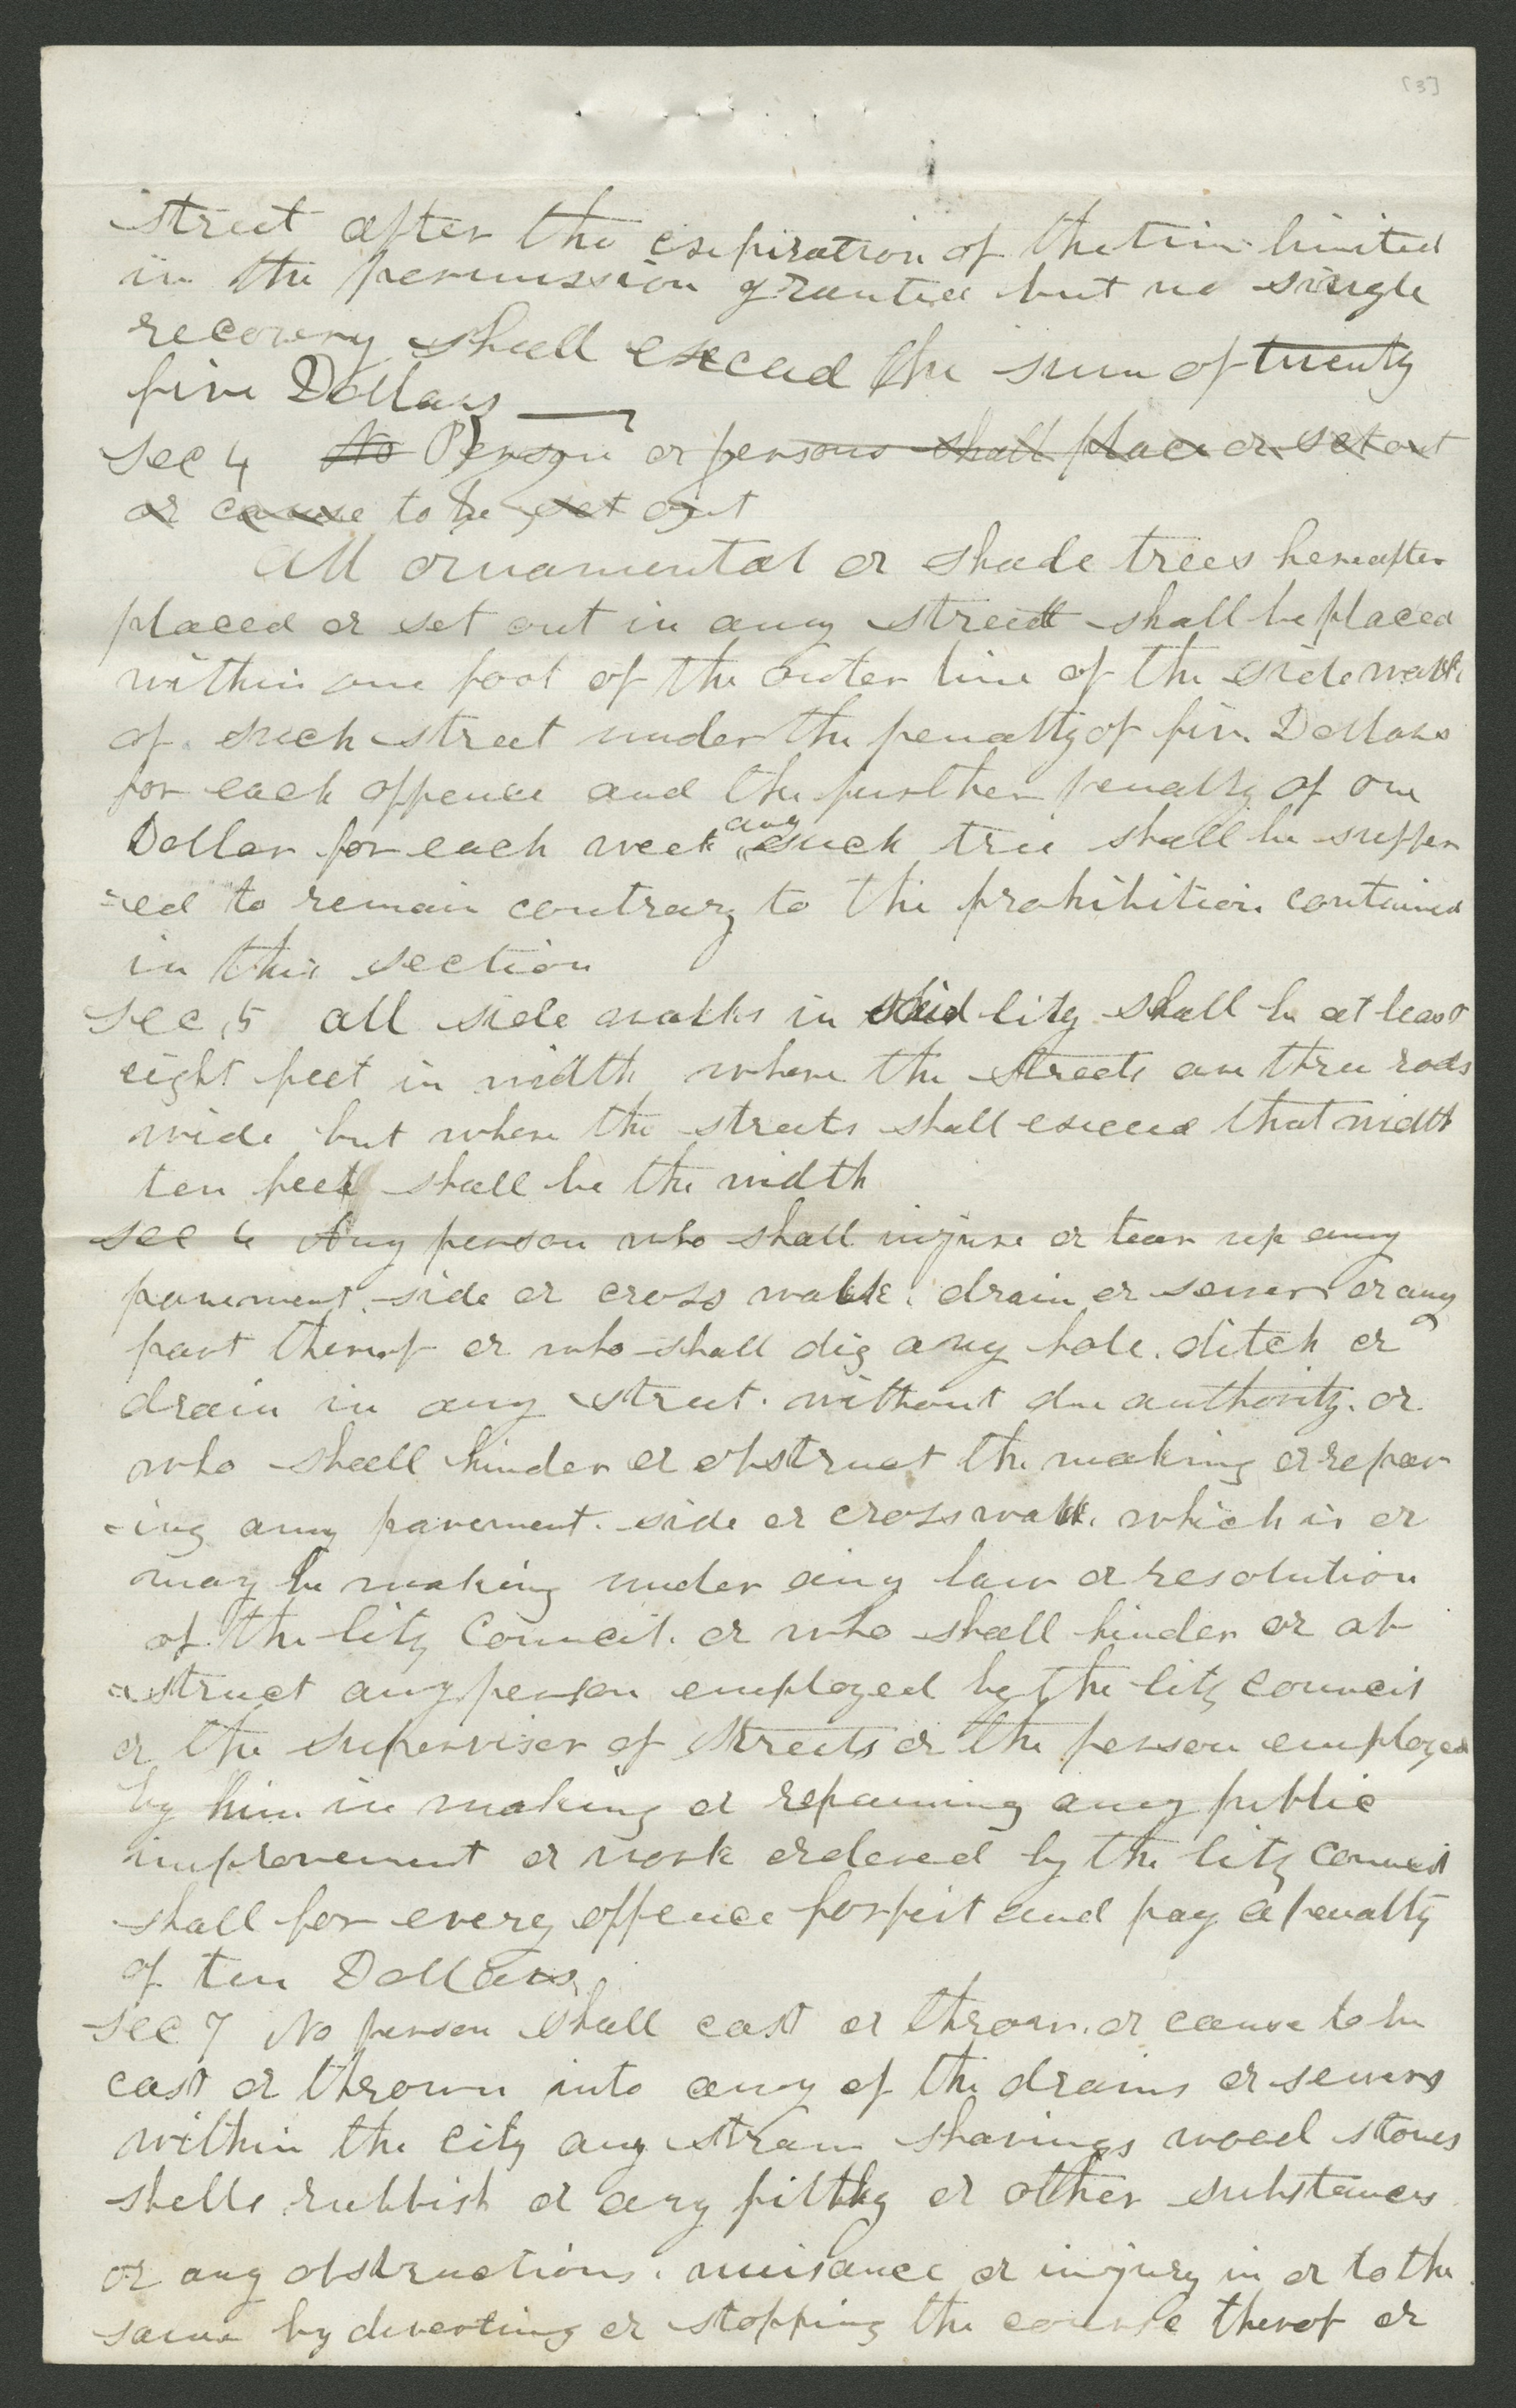 [3]
street after the expiration of the time limited
in the permission granted but no single
recovery shall exceed the sum of twenty
five Dollars
Sec 4 No Person or persons shall place or set out
or cause to be set out
All ornamental or shade trees hereafter
placed or set out in any street shall be placed
within one foot of the outer line of the side walk
of such street under the penalty of five Dollars
for each offence and the further penalty of one
Dollar for each week any such tree shall be suffer
=ed to remain contrary to the prohibition contained
in this section
Sec, 5 all side walks in said City shall be at least
eight feet in width where the streets are three rods
wide but where the streets shall exceed that width
ten feet shall be the width
Sec 6 Any person who shall injure or tear up any
pavement, side or cross walk. drain or sewer or any
part thereof or who shall dig any hole. ditch or
drain in any street. without due authority. or
who shall hinder or obstruct the making or repair
-ing any pavement. side or cross walk. which is or
may be making under any law or resolution
of the City Council. or who shall hinder or ob
=struct any person employed by the City Council
or the supervisor of Streets or the person employed
by him in making or repairing any public
improvement or work ordered by the City Council
shall for every offence forfeit and pay a penalty
of ten Dollars
Sec 7 No person shall cast or throw. or cause to be
cast or thrown into any of the drains or sewers
within the City any straw shavings wood stones
shells rubbish or any filthy or other substances
or any obstructions. nuisance or injury in or to the
same by diverting or stopping the course therof or